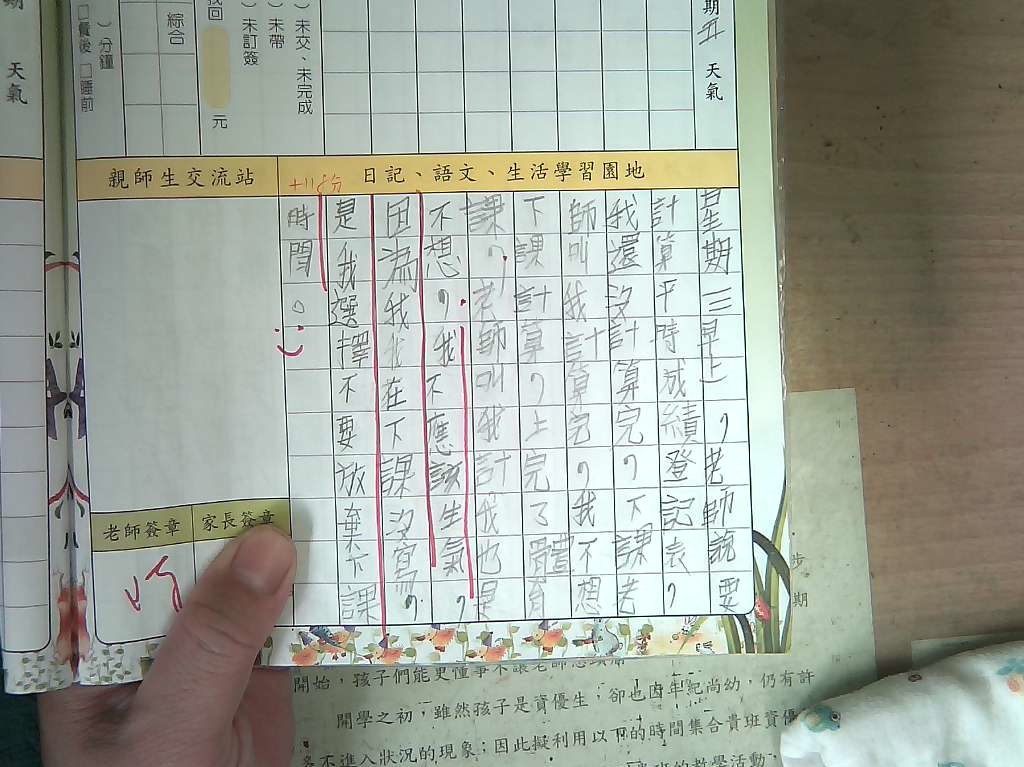 期五 天氣
天氣
未交、未完成
未帶
未訂簽
找回 元
綜合
分鐘
□餐後 □睡前
親師生交流站
日記、語文、生活學習園地
星期三早上,老師說要
計算平時成績登記表,
我還沒計算完,下課老
師叫我計算完,我不想
下課計算,上完了體育
課,老師叫我計我也是
不想,我不應該生氣,
因為我我在下課沒寫,
是我選擇不要放棄下課
時間。
+11分
老師簽章
家長簽章
步
期
開始,孩子們能更懂事不讓老師
開學之初,雖然孩子是資優生,卻也因年紀尚幼,仍有許
多不進入狀況的現象;因此擬利用以下的時間集合貴班資優
班的教學活動